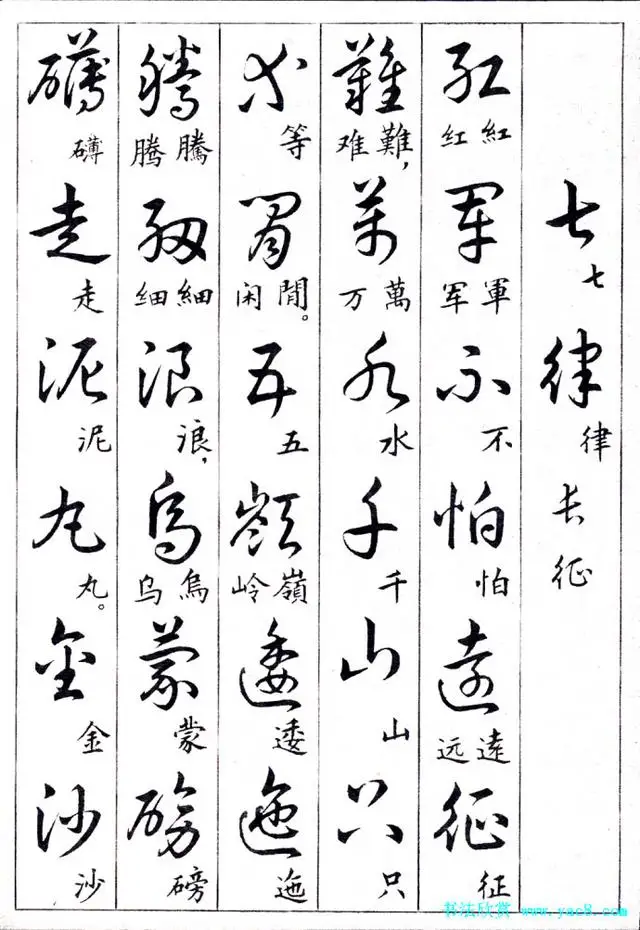 七 七 律 律 长征
紅 紅红 軍 軍军 不 不 怕 怕 遠 遠远 征 征
難 難，难 萬 萬万 水 水 千 千 山 山 只 只
等 等 閒 閒。闲 五 五 嶺 嶺岭 逶 逶 迤 迤
騰 騰腾 細 細细 浪 浪， 烏 烏乌 蒙 蒙 磅 磅
礴 礴 走 走 泥 泥 丸 丸。 金 金 沙 沙
书法欣赏 www.yac8.com